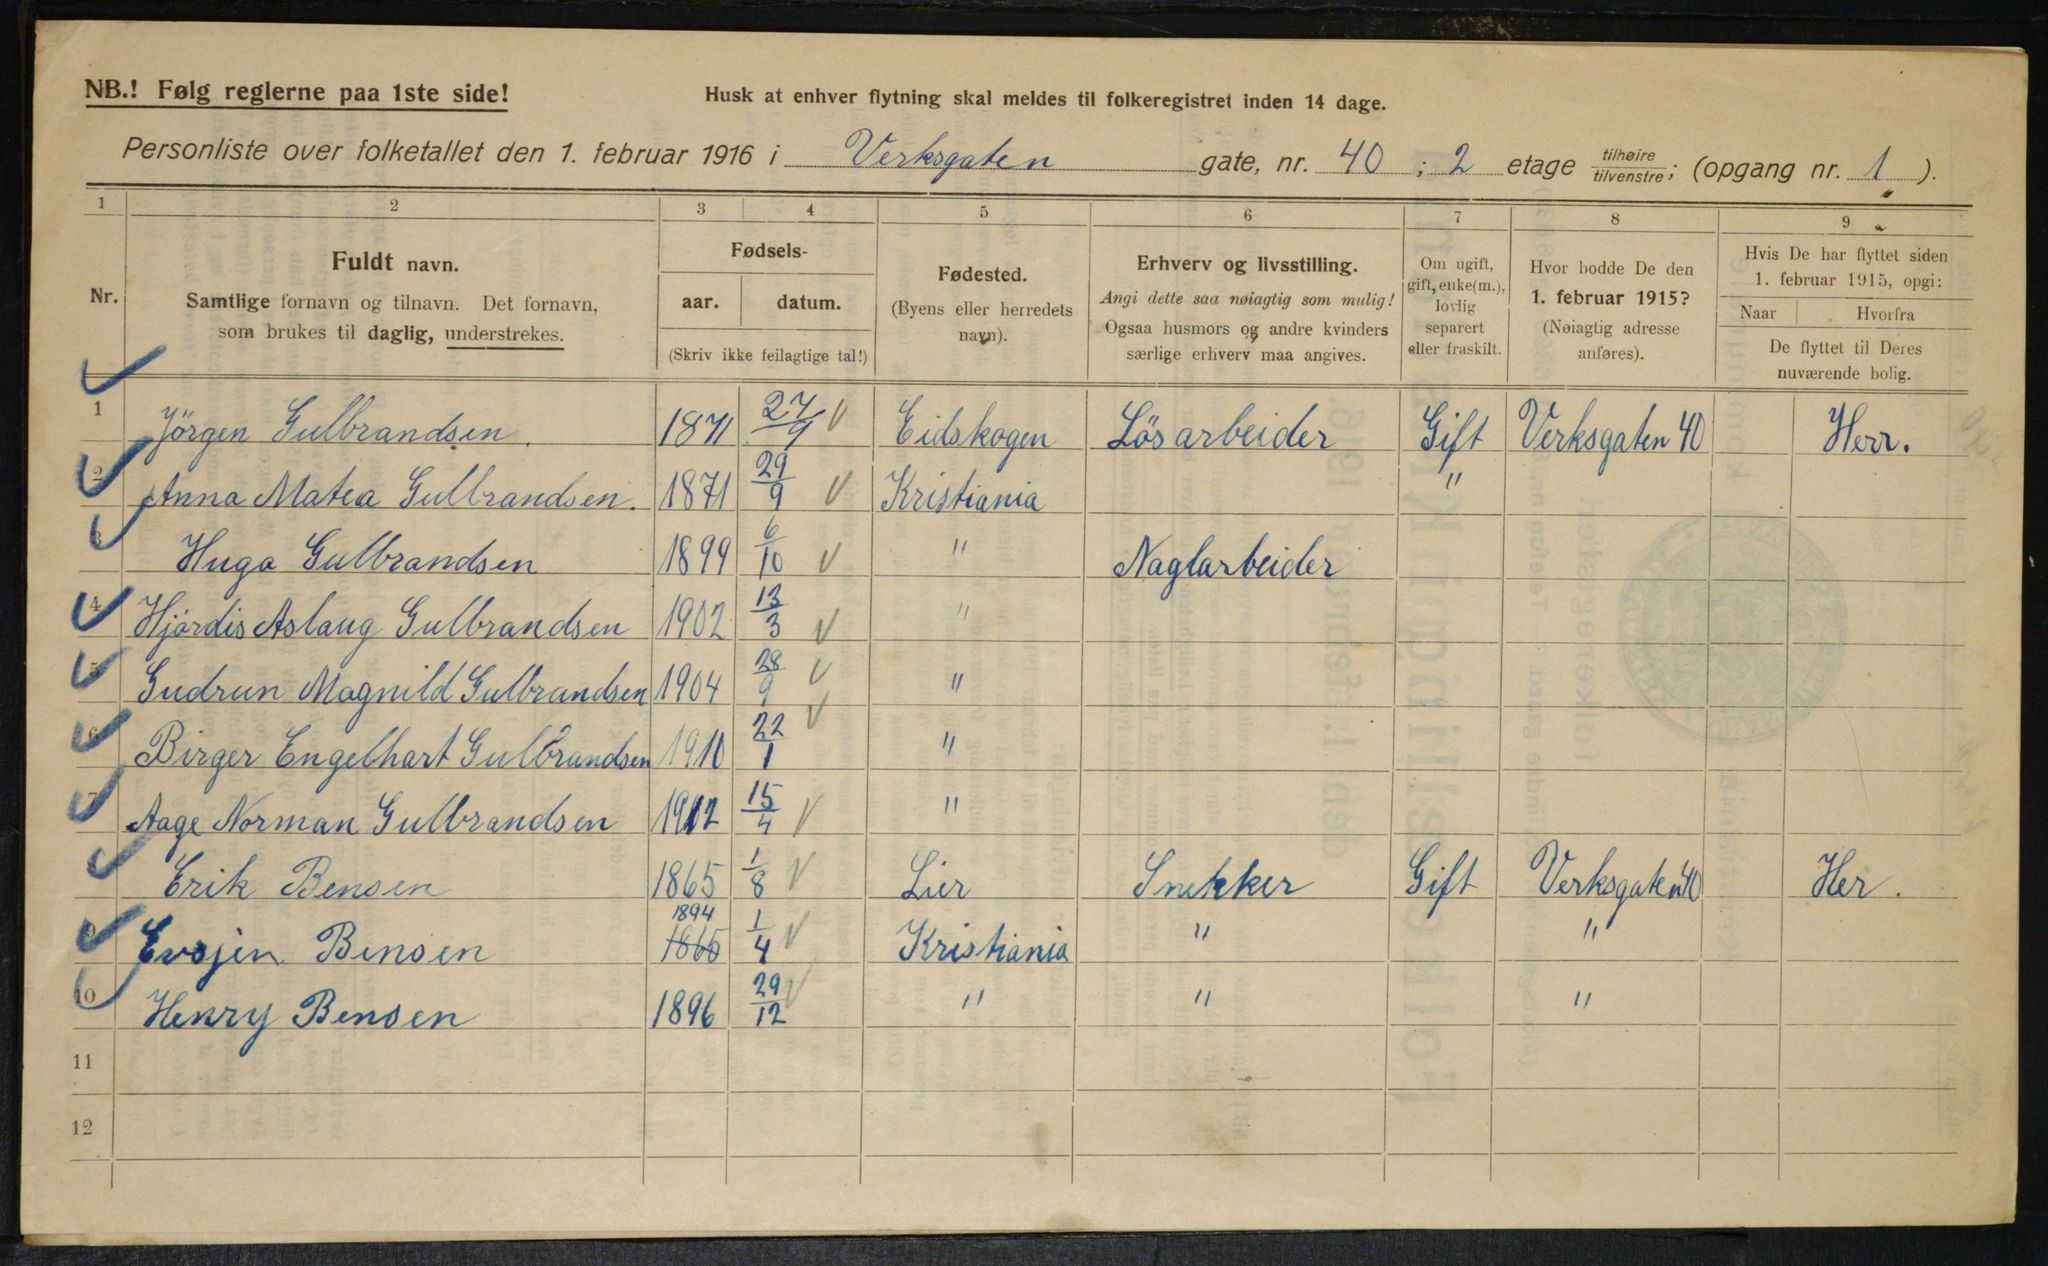 NB.! Følg reglerne paa 1ste side!
Husk at enhver flytning skal meldes til folkeregistret inden 14 dage.
Personliste over folketallet den 1. februar 1916 i Verksgaten gate, nr. 40 ; 2 etage tilhøire tilvenstre; (opgang nr. 1 ).
1 2 3 4 5 6 7 8 9
Nr.
Fuldt navn.
Samtlige fornavn og tilnavn. Det fornavn,
som brukes til daglig, understrekes.
Fødsels-
aar. datum.
(Skriv ikke feilagtige tal!)
Fødested.
(Byens eller herredets
navn).
Erhverv og livsstilling.
Angi dette saa nøiagtig som mulig!
Ogsaa husmors og andre kvinders
særlige erhverv maa angives.
Om ugift,
gift, enke(m.),
lovlig
separert
eller fraskilt.
Hvor bodde De den
1. februar 1915?
(Nøiagtig adresse
anføres).
Hvis De har flyttet siden
1. februar 1915, opgi:
Naar Hvorfra
De flyttet til Deres
nuværende bolig.
1 Jörgen Gulbrandsen. 1871 27/9 Eidskogen Lösarbeider Gift Verksgaten 40 Herr.
2 Anna Matea Gulbrandsen. 1871 29/9 Kristiania "
3 Hugo Gulbrandsen 1899 6/10 " Naglarbeider
4 Hjördis Aslaug Gulbrandsen 1902 13/3 "
5 Gudrun Magnild Gulbrandsen 1904 28/9 "
6 Birger Engelhart Gulbrandsen 1910 22/1 "
7 Aage Norman Gulbrandsen 1912 15/4 "
Erik Bensen 1865 1/8 Lier Snekker Gift Verksgaten 40 Her.
9 Evsjen Bensen 1894 1865 1/4 Kristiania " "
10 Henry Bensen 1896 29/12 " " "
11
12